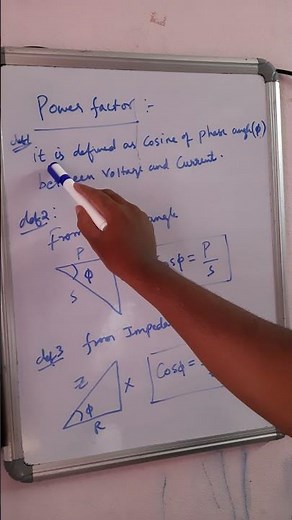 Power factor :-
def1 it is defined as Cosine of phase angle(φ)
between voltage and current.
def2:
From angle
P
φ
S
sφ = P/S
def3 from Impeda
Z
X
φ
R
Cosφ =